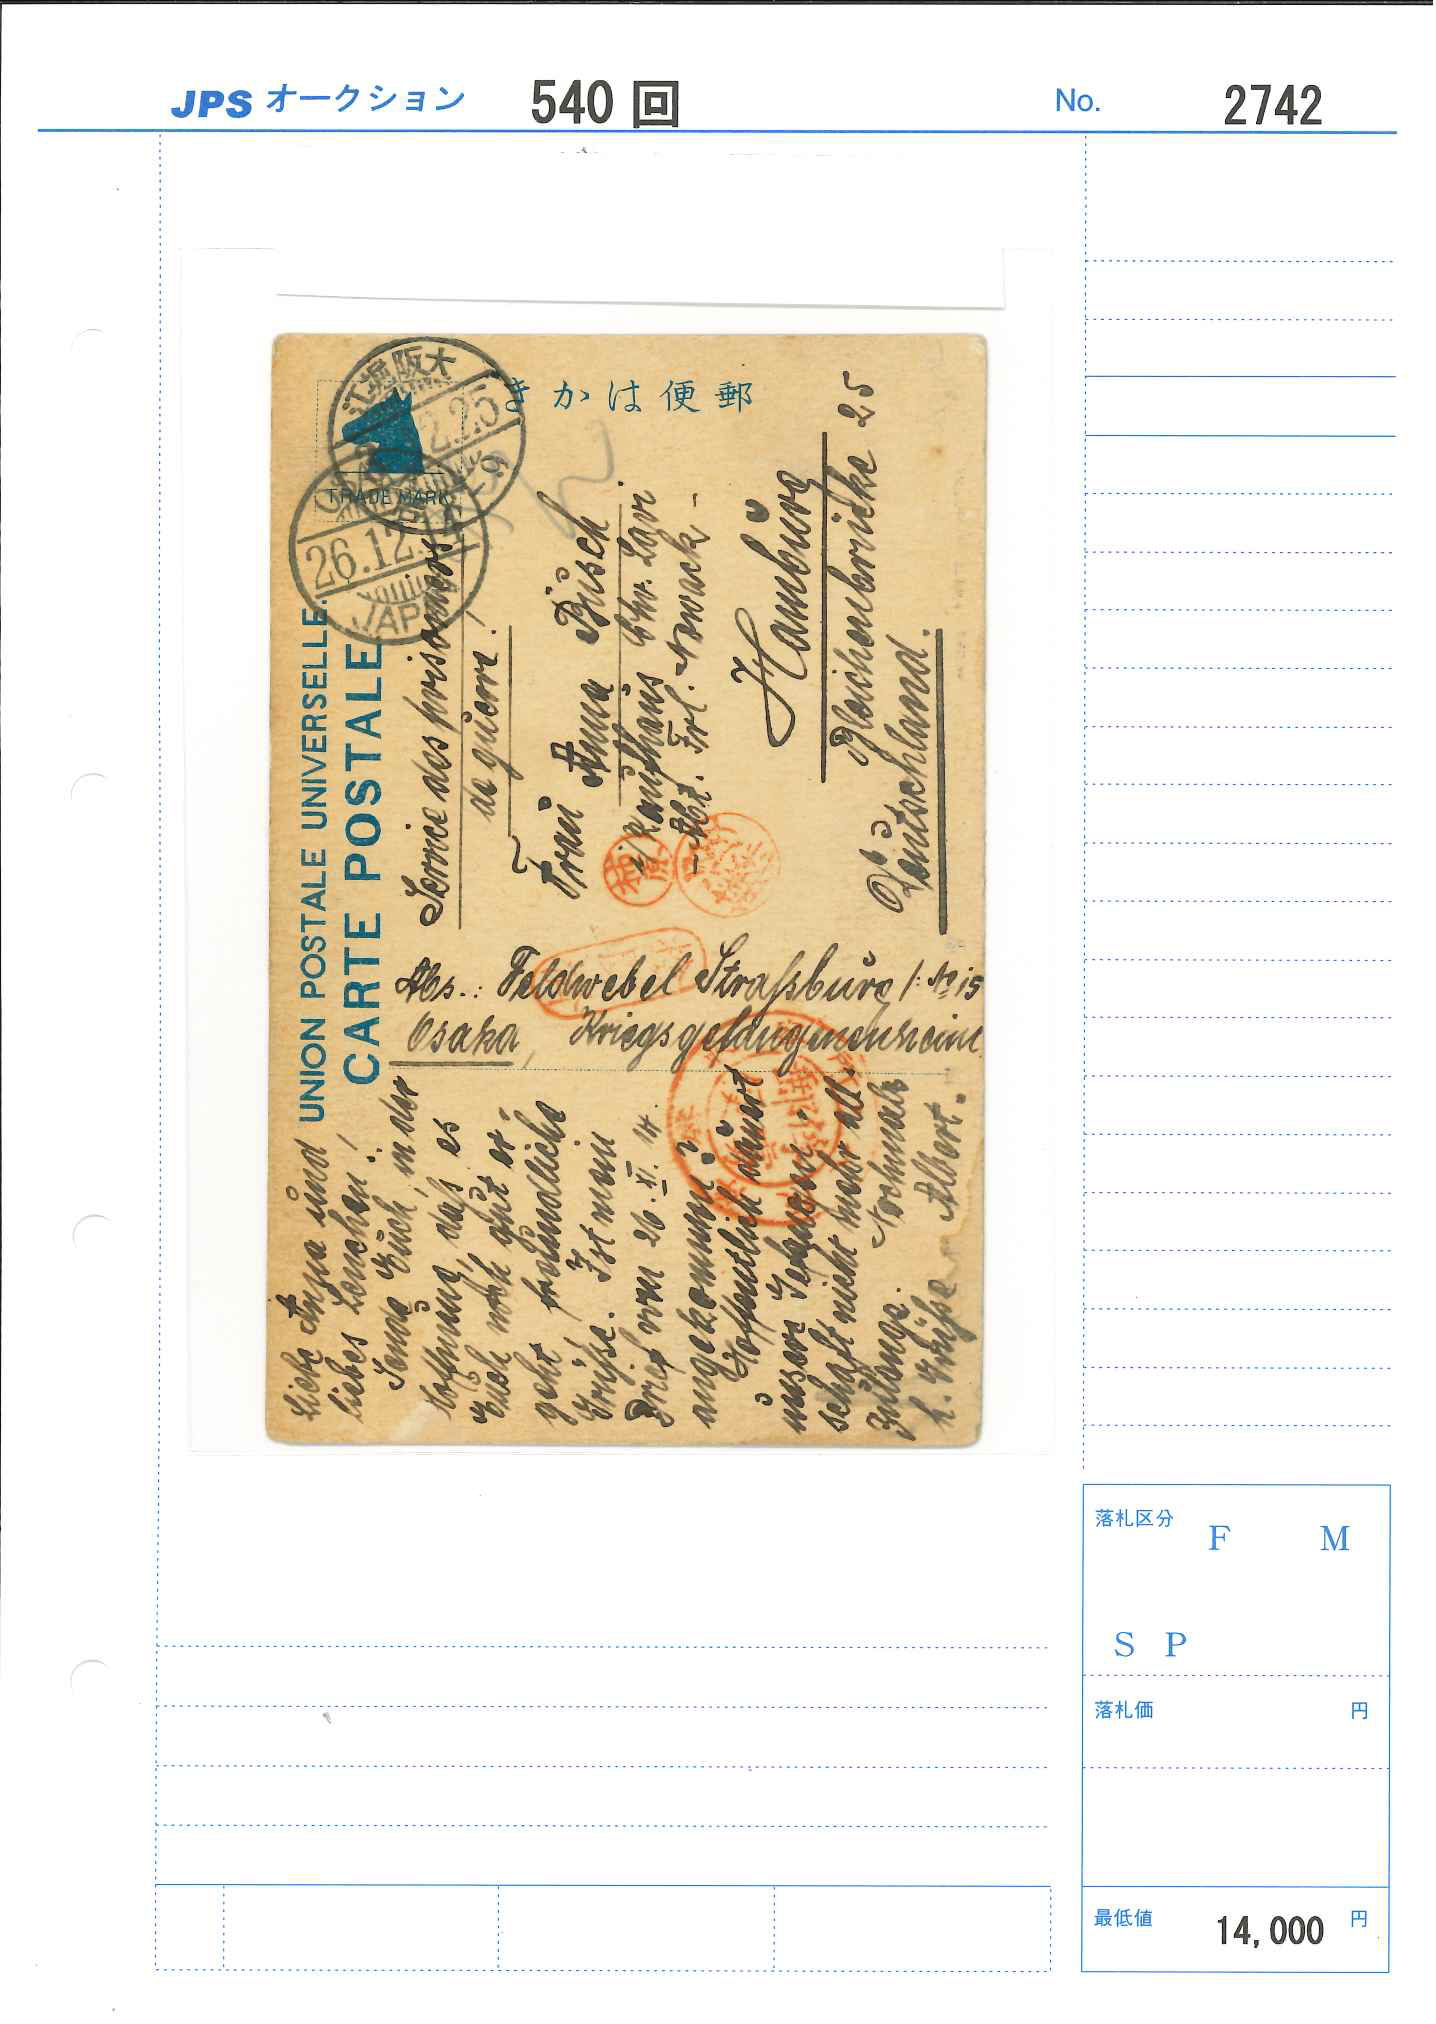 JPS オークション 540 回 No. 2742
郵便はかき
UNION POSTALE UNIVERSELLE.
CARTE POSTALE
TRADE MARK
大阪堀江
2.25
26.12
JAPAN
Service des prisonniers
de guerre!
Frau Anna Büsch
Kaufhaus
Abt. Frl. Nowack -
Hamburg
25
Deutschland.
Abs.: Feldwebel Straßburg No 15
Osaka, Kriegsgefangenenheim
Liebe Anna und
liebes Lenchen!
Sende Euch, in der
Hoffnung, daß es
Euch noch gut er-
geht, freundliche
Grüße. Ist mein
Brief vom 26. XI. 14.
angekommen?
Hoffentlich dauert
unsere Gefangen-
schaft nicht mehr all-
zulange. Nochmals
h. Grüße Albert.
落札区分 F M
S P
落札価 円
最低値 14,000 円